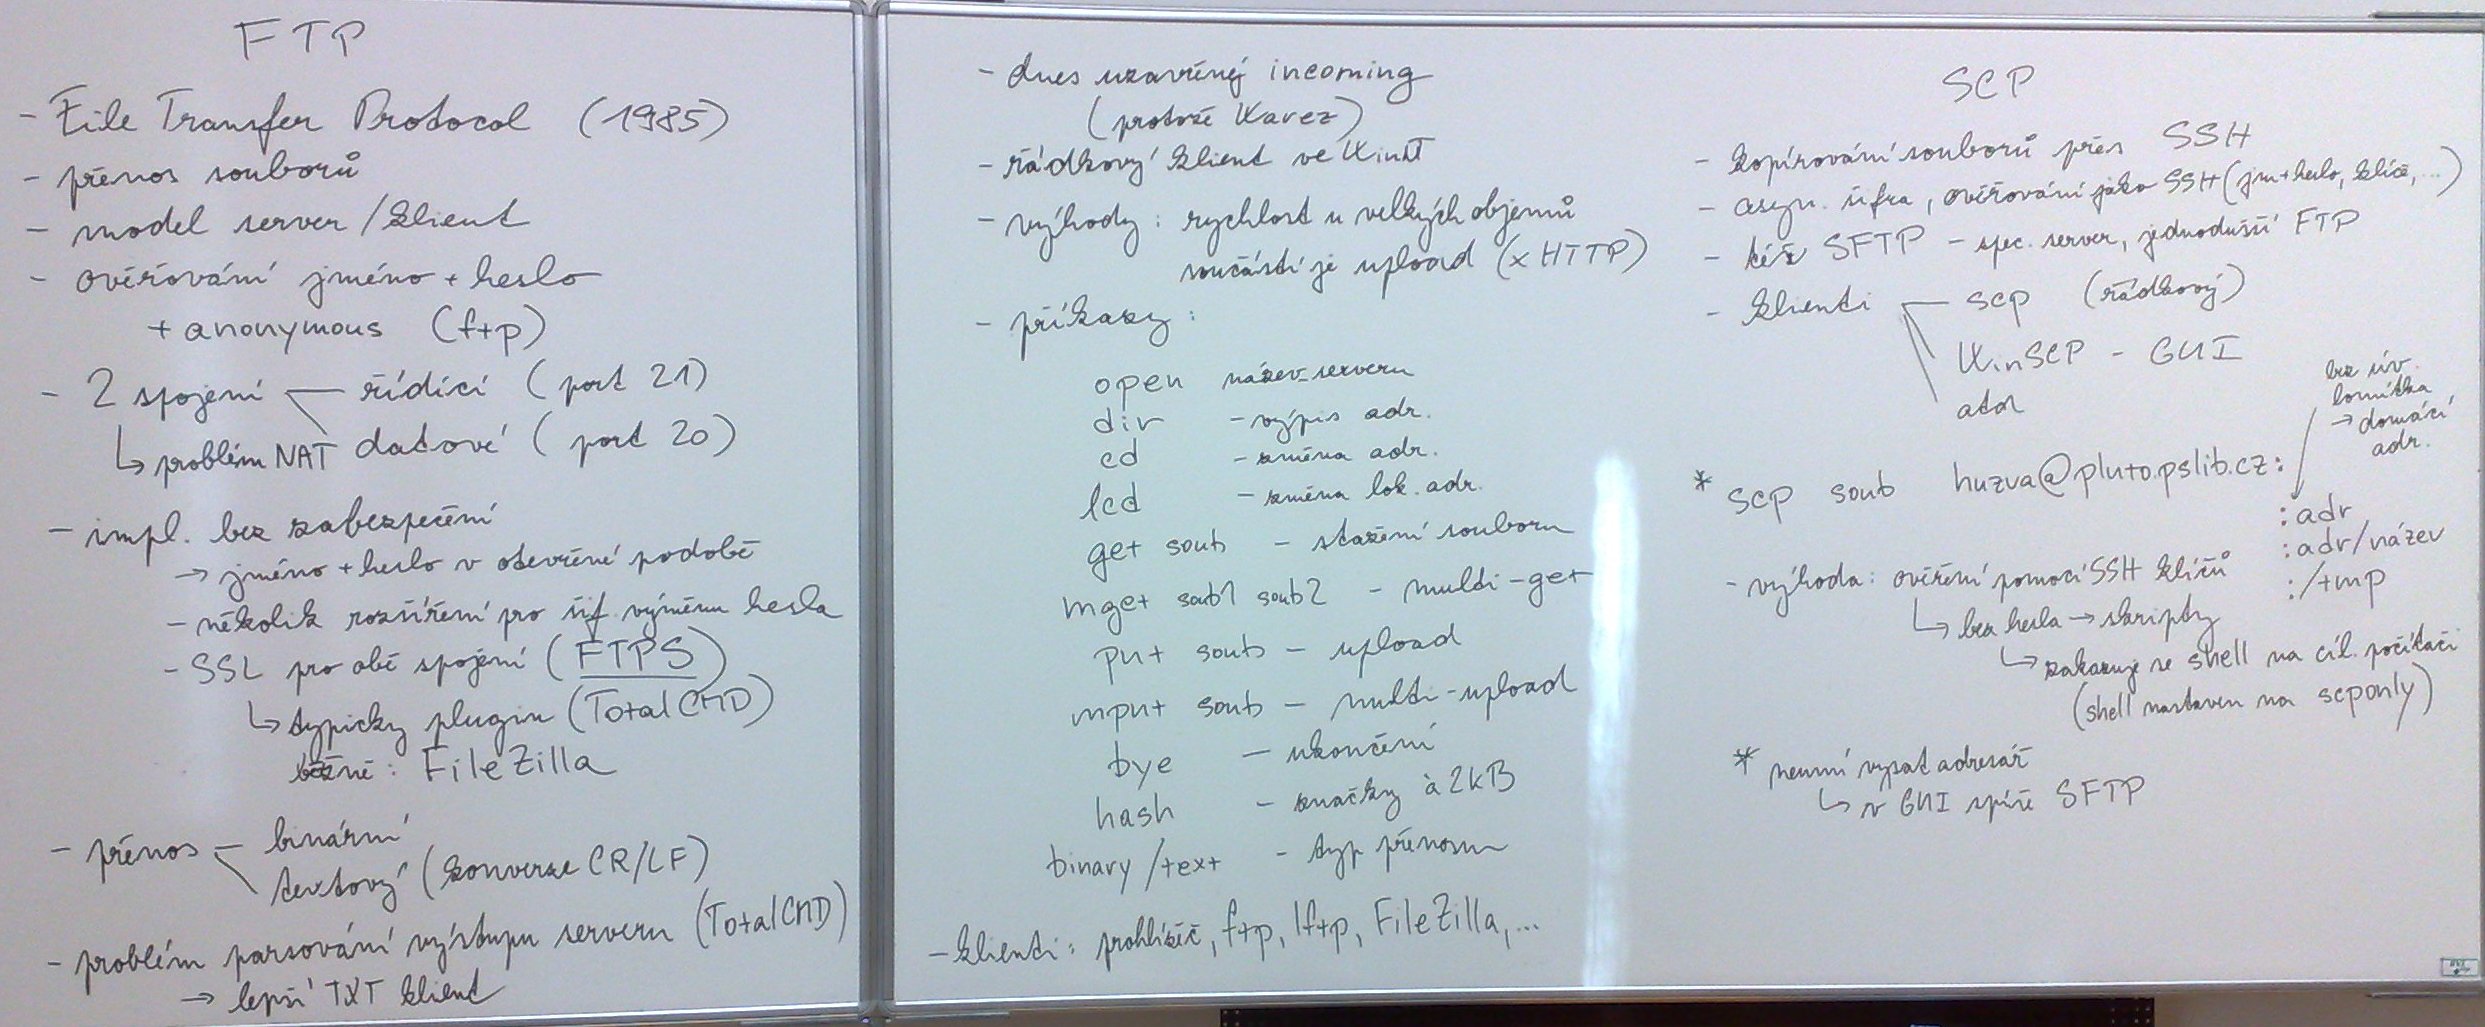 FTP
- File Transfer Protocol (1985)
- přenos souborů
- model server/klient
- ověřování jméno + heslo
+ anonymous (ftp)
- 2 spojení řídící (port 21)
↳ problém NAT datové (port 20)
- impl. bez zabezpečení
→ jméno + heslo v otevřené podobě
- několik rozšíření pro šif. výměnu hesla
- SSL pro obě spojení (FTPS)
↳ typicky plugin (TotalCMD)
běžně: FileZilla
- přenos binární
textový (konverze CR/LF)
- problém parsování výstupu serveru (TotalCMD)
→ lepší TXT klient
- dnes uzavřený incoming
(protože Warez)
- řádkový klient ve WinNT
- výhody: rychlost u velkých objemů
součástí je upload (x HTTP)
- příkazy:
open název_serveru
dir - výpis adr.
cd - změna adr.
lcd - změna lok. adr.
get soub - stažení souboru
mget soub1 soub2 - multi-get
put soub - upload
mput soub - multi-upload
bye - ukončení
hash - značky à 2kB
binary/text - typ přenosu
- klienti: prohlížeč, ftp, lftp, FileZilla,...
SCP
- kopírování souborů přes SSH
- asym. šifra, ověřování jako SSH (jm+heslo, klíče,...)
- též SFTP - spec. server, jednodušší FTP
- klienti scp (řádkový)
WinSCP - GUI
atd
bez úv.
lomítka
→ domácí
adr.
* scp soub huzva@pluto.pslib.cz:
:adr
:adr/název
:/tmp
- výhoda: ověření pomocí SSH klíčů
↳ bez hesla → skripty
↳ zakazuje se shell na cíl. počítači
(shell nastaven na scponly)
* neumí vypsat adresář
↳ v GUI spíše SFTP